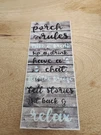 porch
rules
have a
chat
tell stories
sit back &
relax